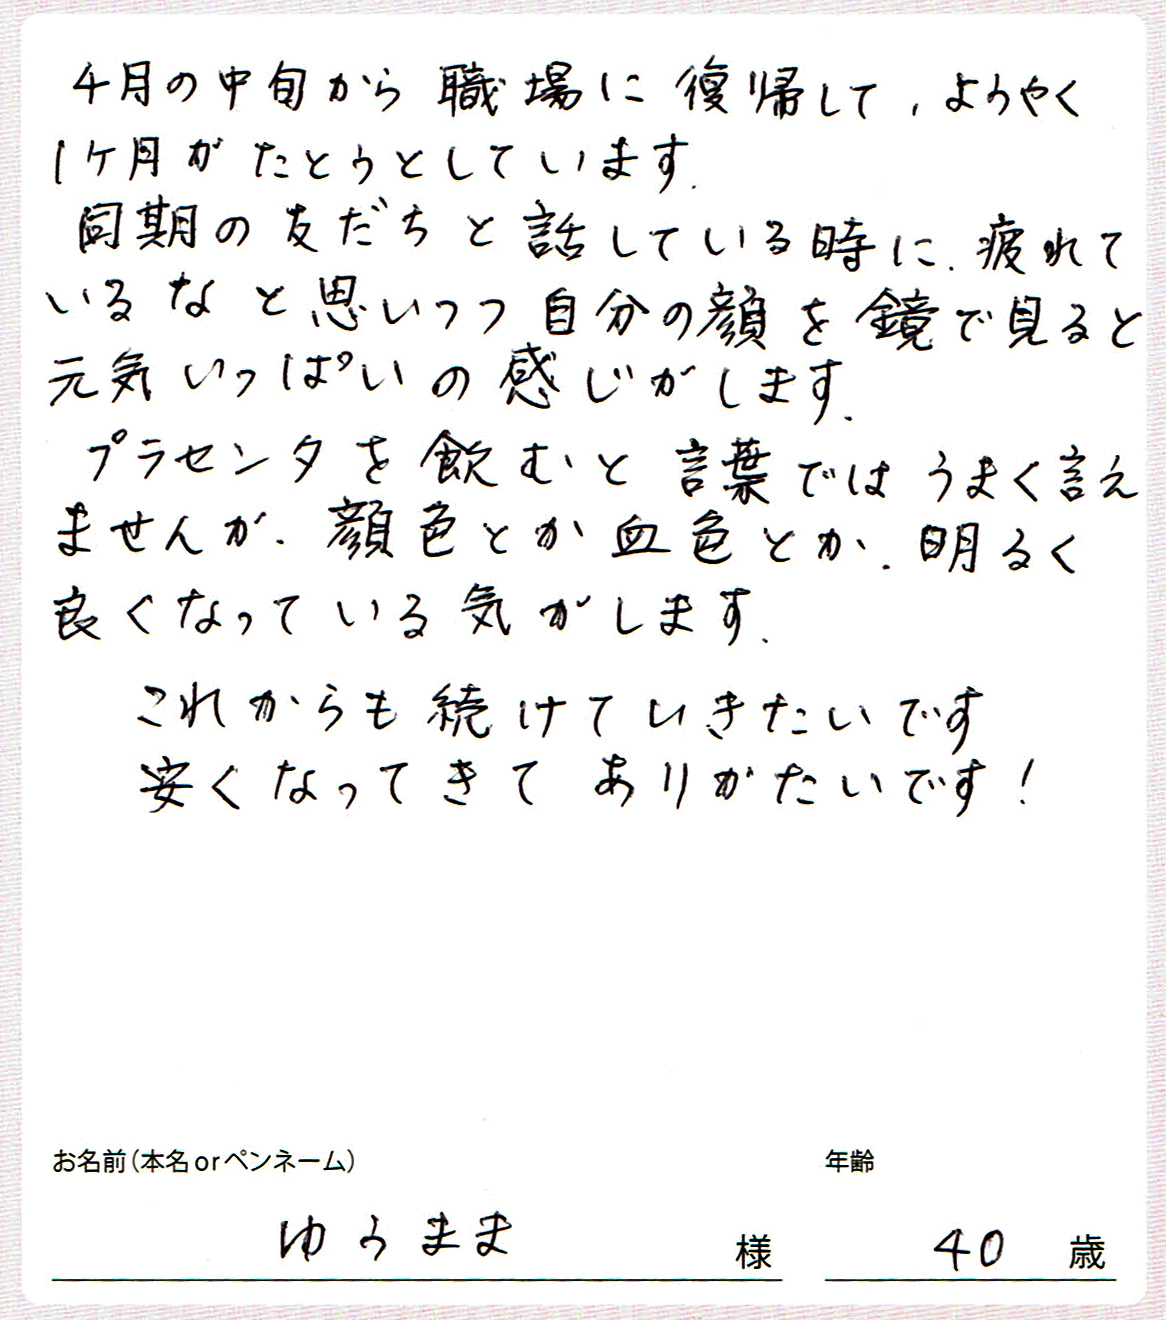 4月の中旬から職場に復帰して、ようやく
1ヶ月がたとうとしています.
同期の友だちと話している時に、疲れて
いるなと思いつつ自分の顔を鏡で見ると
元気いっぱいの感じがします.
プラセンタを飲むと言葉ではうまく言え
ませんが、顔色とか血色とか、明るく
良くなっている気がします.
これからも続けていきたいです
安くなってきてありがたいです!
お名前(本名orペンネーム)
年齢
ゆうまま 様
40 歳